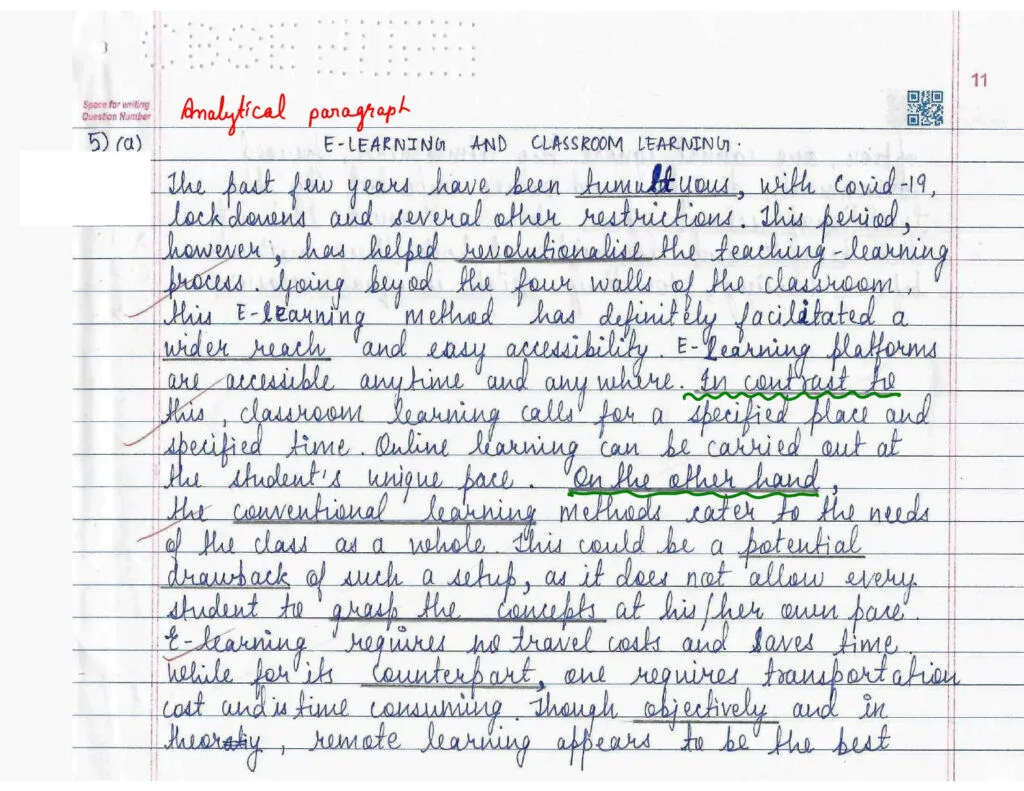 11
Space for writing
Question Number
Analytical paragraph
5) (a)
E-LEARNING AND CLASSROOM LEARNING.
The past few years have been tumultuous, with Covid-19,
lockdowns and several other restrictions. This period,
however, has helped revolutionalise the teaching-learning
process. Going beyod the four walls of the classroom
this E-learning method has definitely facilitated a
wider reach and easy accessibility. E-Learning platforms
are accessible anytime and anywhere. In contrast to
this, classroom learning calls for a specified place and
specified time. Online learning can be carried out at
the student's unique pace. On the other hand,
the conventional learning methods cater to the needs
of the class as a whole. This could be a potential
drawback of such a setup, as it does not allow every
student to grasp the concepts at his/her own pace.
E-learning requires no travel costs and saves time.
While for its counterpart, one requires transportation
cost and is time consuming. Though objectively and in
theory, remote learning appears to be the best